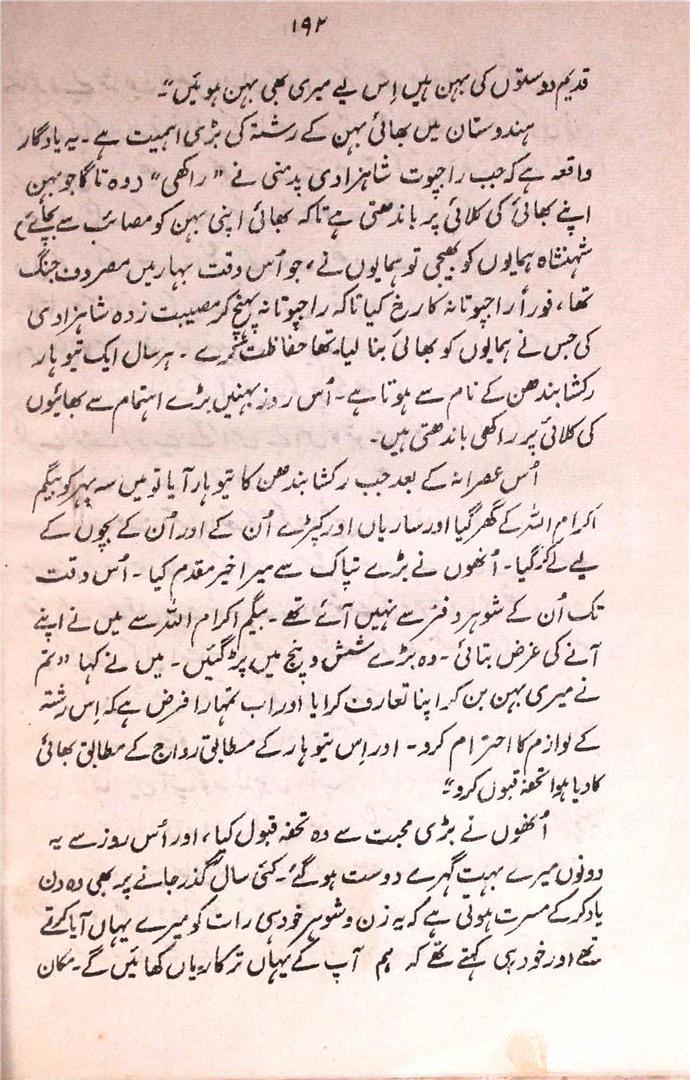 ۱۹۳
قدیم دوستوں کی بہن ہیں اِس لیے میری بھی بہن ہوئیں"۔
ہندوستان میں بھائی بہن کے رشتہ کی بڑی اہمیت ہے۔ یہ یادگار
واقعہ ہے کہ جب راجپوت شاہزادی پدمنی نے "راکھی" (وہ تاگا جو بہن
اپنے بھائی کی کلائی پر باندھتی ہے تاکہ بھائی اپنی بہن کو مصائب سے بچائے)
شہنشاہ ہمایوں کو بھیجی تو ہمایوں نے، جو اُس وقت بہار میں مصروف جنگ
تھا، فوراً راجپوتانہ کا رخ کیا تاکہ راجپوتانہ پہنچ کر مصیبت زدہ شاہزادی
کی جس نے ہمایوں کو بھائی بنا لیا تھا حفاظت کرے۔ ہر سال ایک تیوہار
رکشا بندھن کے نام سے ہوتا ہے۔ اُس روز بہنیں بڑے اہتمام سے بھائیوں
کی کلائی پر راکھی باندھتی ہیں۔
اُس عصرانہ کے بعد جب رکشا بندھن کا تیوہار آیا تو میں سہ پہر کو بیگم
اکرام اللہ کے گھر گیا اور ساریاں اور کپڑے اُن کے اور اُن کے بچوں کے
لیے لے کر گیا۔ اُنھوں نے بڑے تپاک سے میرا خیر مقدم کیا۔ اُس وقت
تک اُن کے شوہر دفتر سے نہیں آئے تھے۔ بیگم اکرام اللہ سے میں نے اپنے
آنے کی غرض بتائی۔ وہ بڑے شش و پنج میں پڑ گئیں۔ میں نے کہا "تم
نے میری بہن بن کر اپنا تعارف کرایا اور اب تمہارا فرض ہے کہ اِس رشتہ
کے لوازم کا احترام کرو۔ اور اِس تیوہار کے مطابق رواج کے مطابق بھائی
کا دیا ہوا تحفہ قبول کرو"۔
اُنھوں نے بڑی محبت سے وہ تحفہ قبول کیا، اور اُس روز سے یہ
دونوں میرے بہت گہرے دوست ہو گئے۔ کئی سال گذر جانے پر بھی وہ دن
یاد کر کے مسرت ہوتی ہے کہ یہ زن و شوہر خود ہی رات کو میرے یہاں آیا کرتے
تھے اور خود ہی کہتے تھے کہ ہم آپ کے یہاں ترکاریاں کھائیں گے۔ مکان